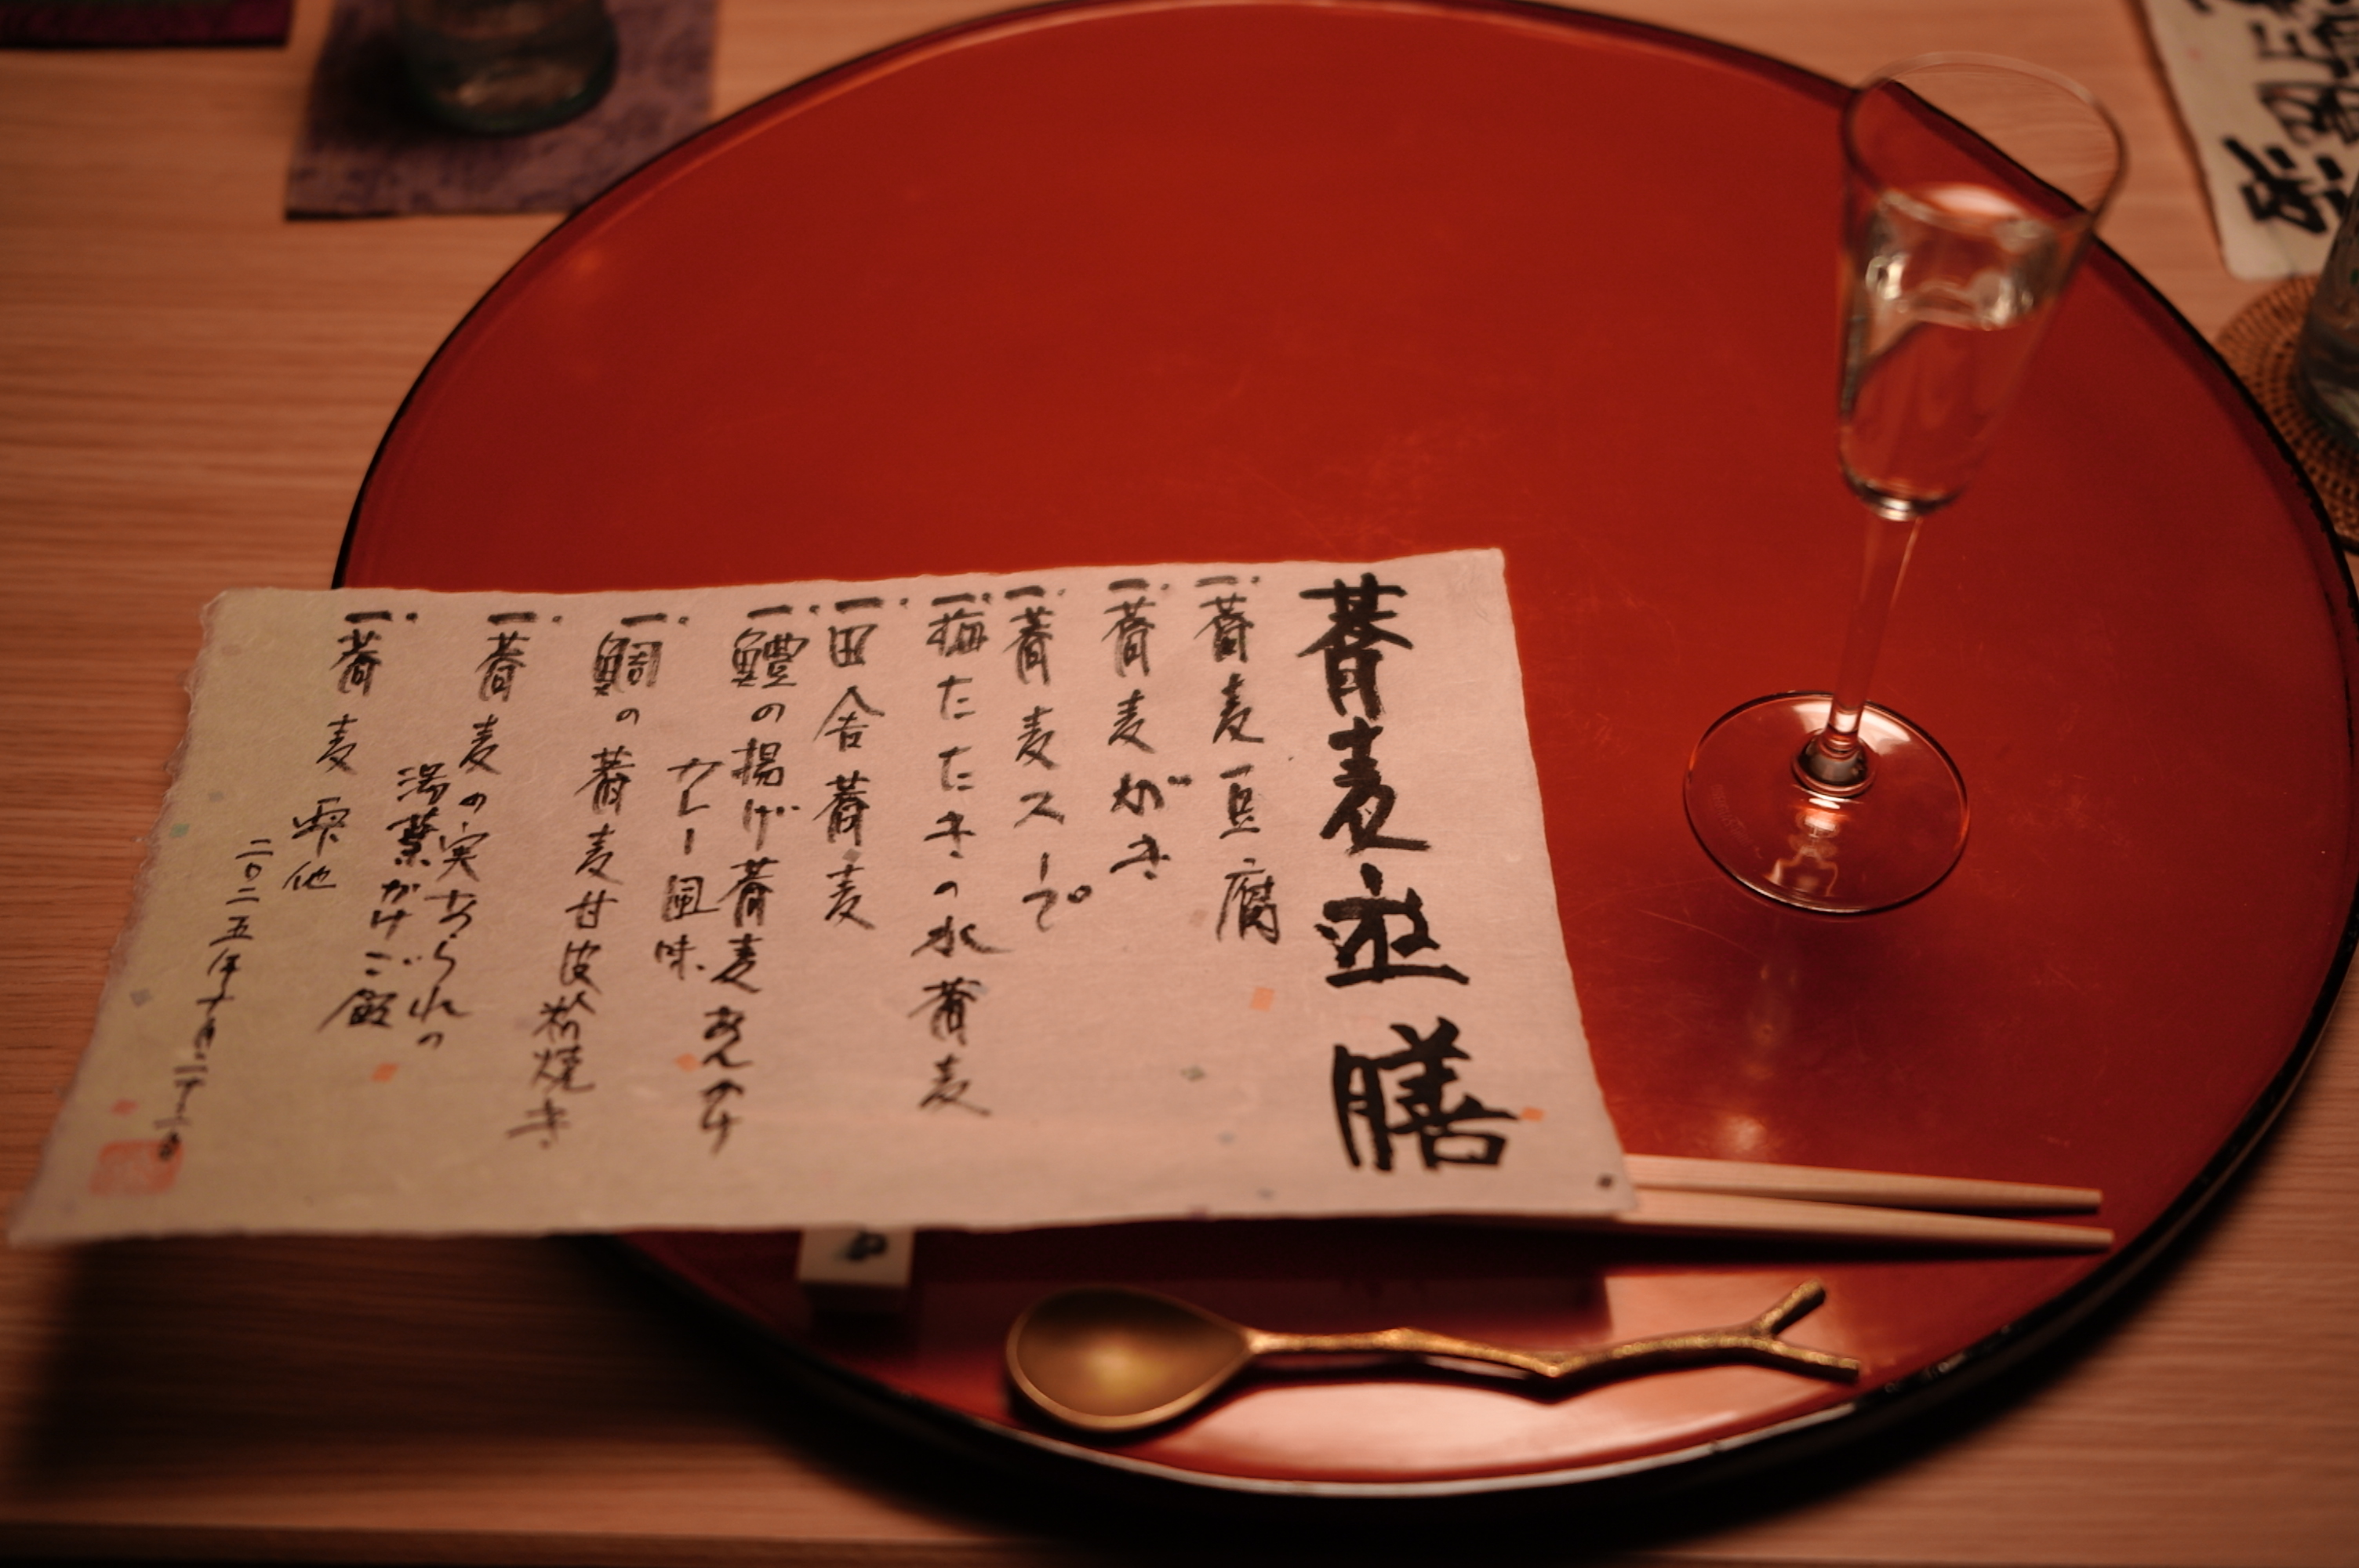 蕎麦遊膳
一、蕎麦豆腐
一、蕎麦がき
一、蕎麦スープ
一、梅たたきの水蕎麦
一、田舎蕎麦
一、鱧の揚げ蕎麦あんかけ
カレー風味
一、鯛の蕎麦甘皮粉焼き
一、蕎麦の実あられの
湯葉がけご飯
一、蕎麦
二〇二五年十月二十二日